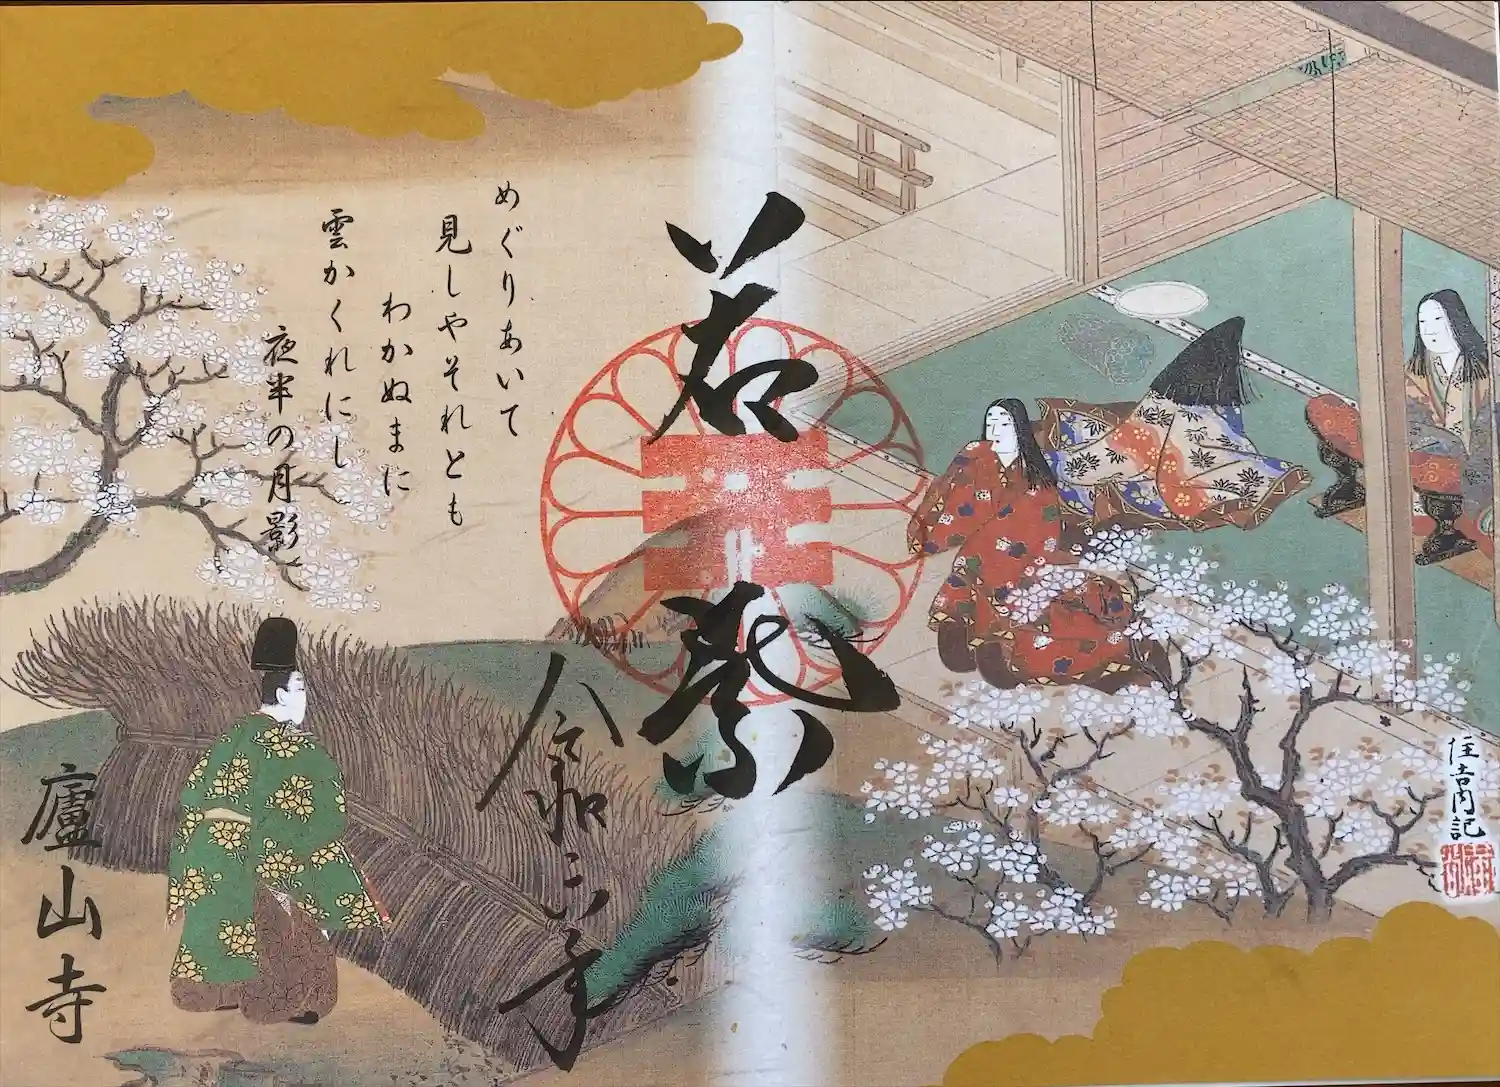 住吉内記
若紫
めぐりあいて
見しやそれとも
わかぬまに
雲かくれにし
夜半の月影
令和六年
廬山寺